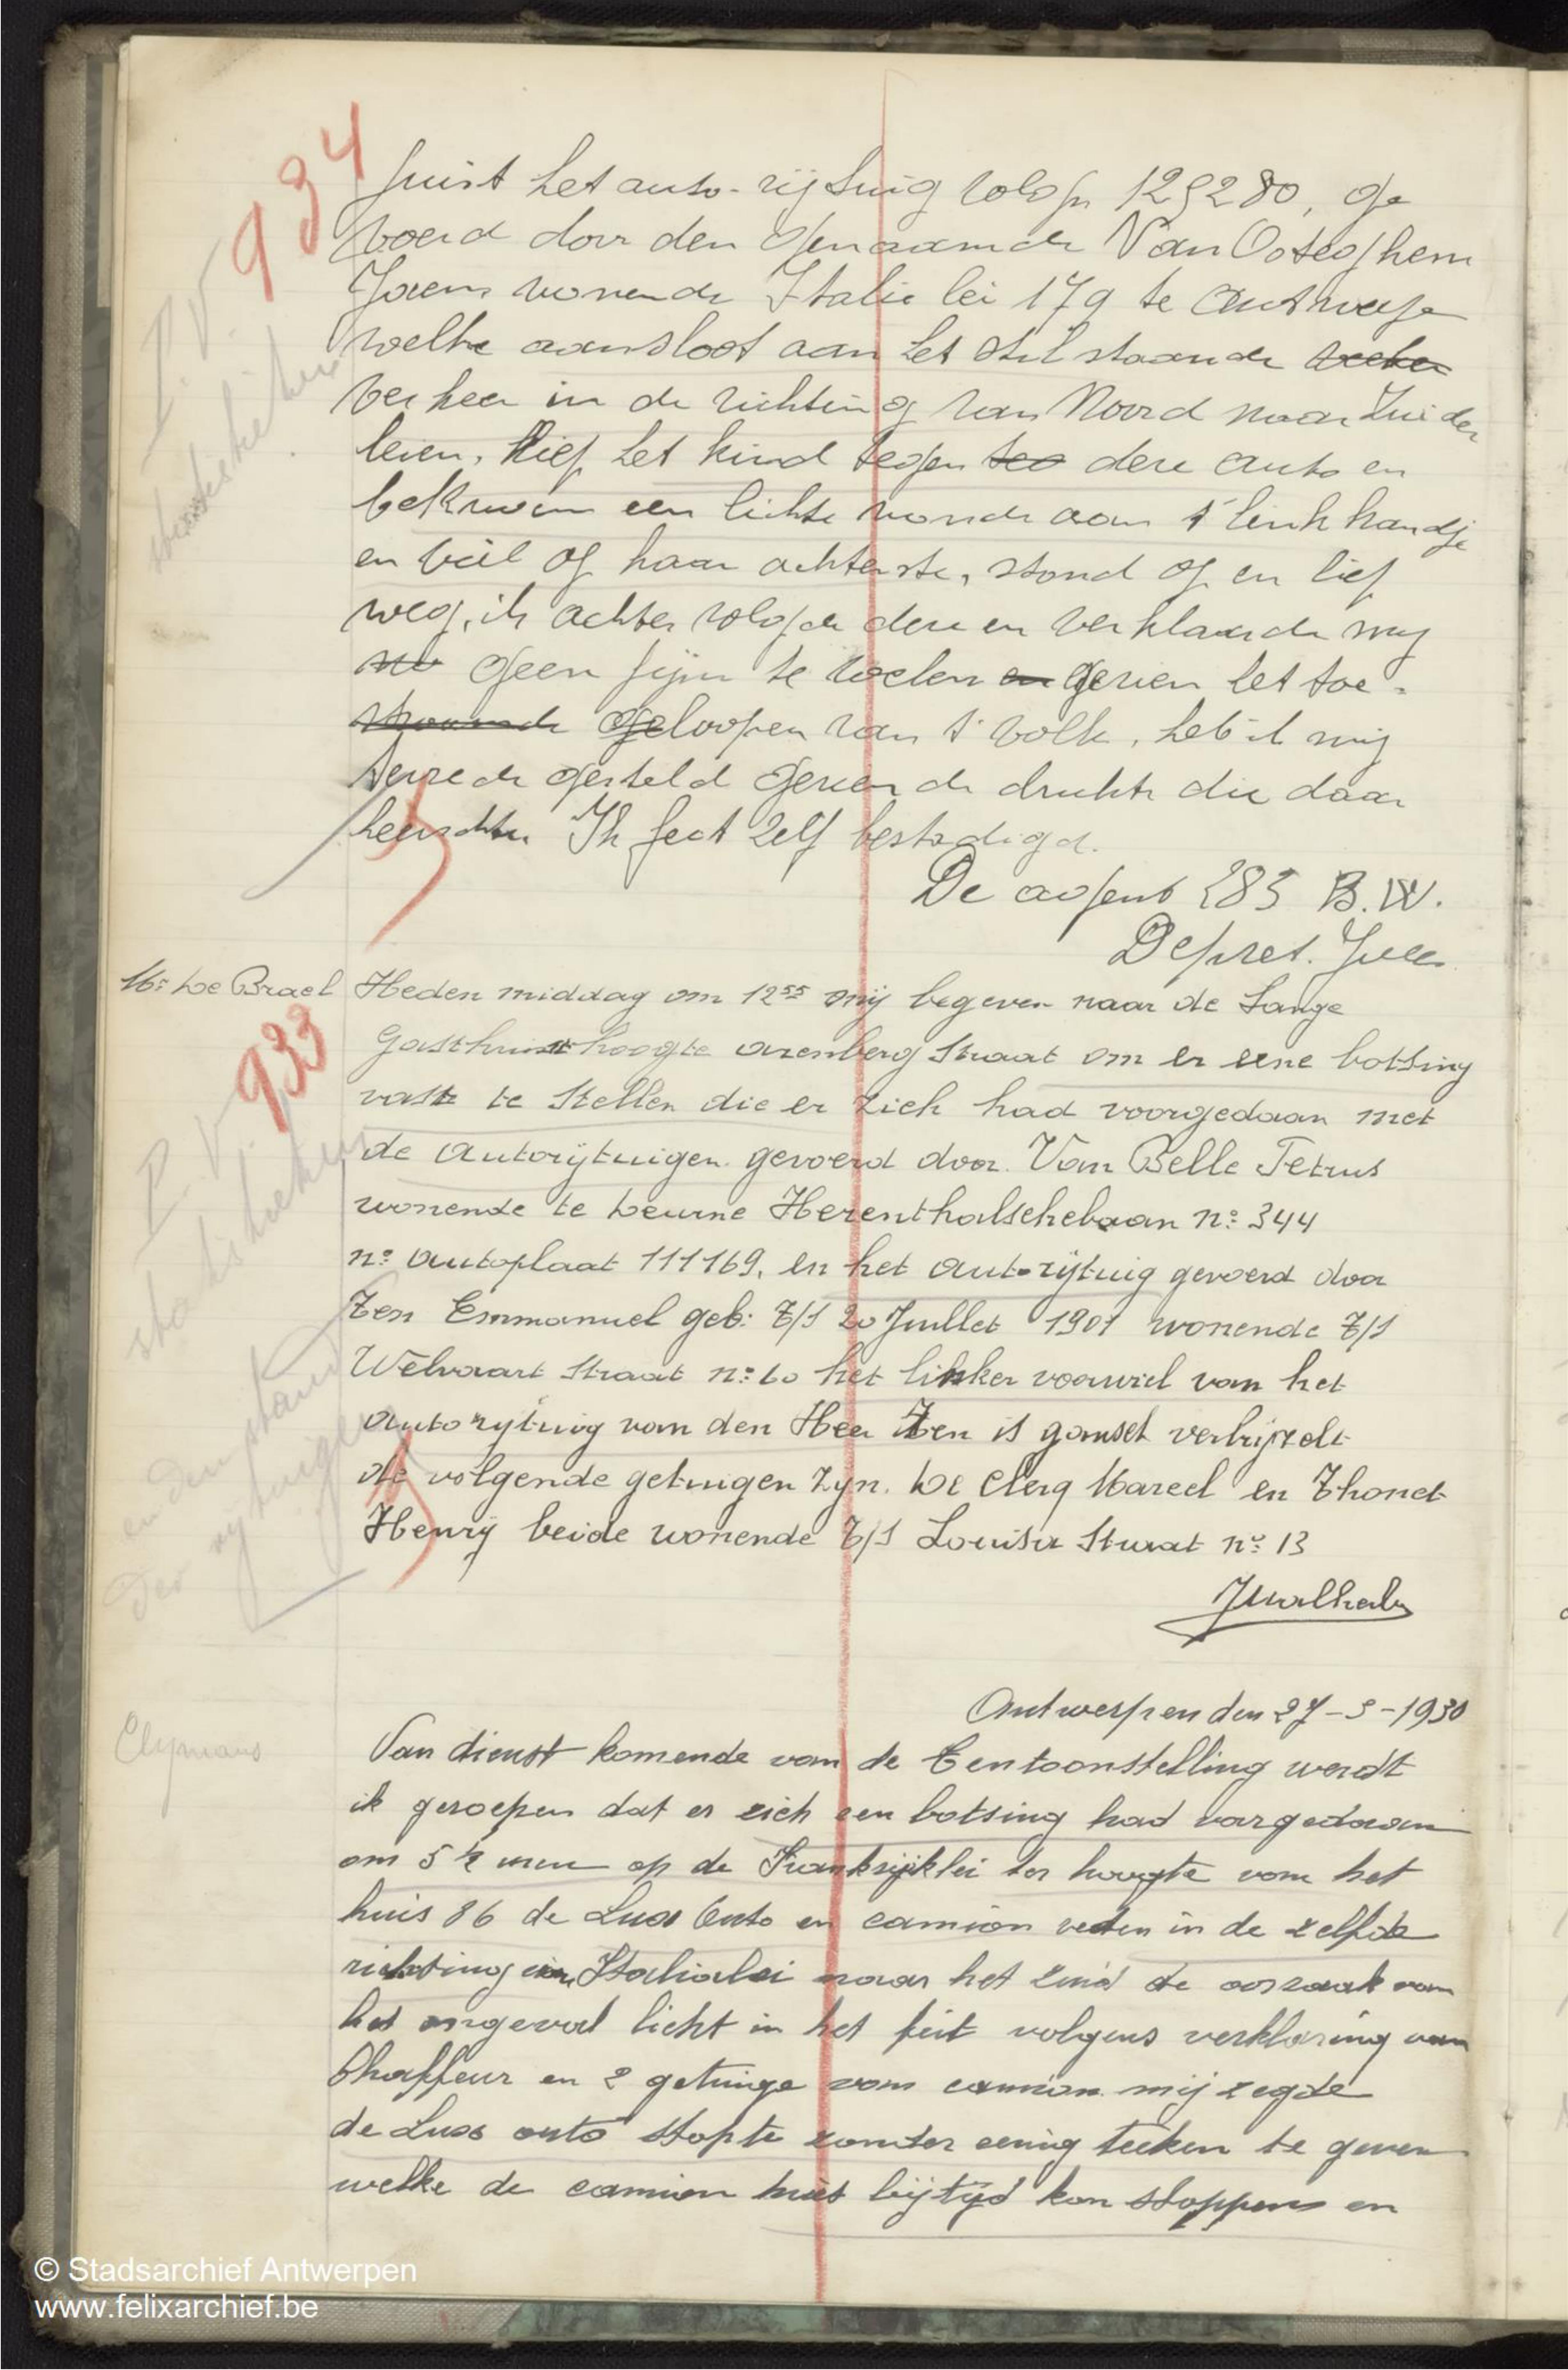 934
juist het auto-rijtuig volgn 129280, ge
voerd door den genaamde Van Ooteghem
Jorens wonende Italie lei 179 te Antwerpe
P.V.
statistieken
welke aansloot aan het stil staande
verkeer in de richting van Noord naar Zuider
leien, liep het kind tegen deze auto en
bekwam een lichte wonde aan 't link handje
en viel op haar achterste, stond op en liep
weg, ik achter volgde deze en verklaarde mij
geen pijn te voelen gezien het toe-
geloopen van 't volk, heb ik mij
tevrede gesteld gezien de drukte die daar
heerschte. Ik feit zelf bestadigd.
De agent 283 B.W.
Depret. Jules
16: De Brael
Heden middag om 12⁵⁵ mij begeven naar de Lange
Gasthuist hoogte arenberg Straat om er eene botsing
933
vast te stellen die er zich had voorgedaan met
P.V.
statistieken
de autorijtuigen gevoerd door Van Belle Petrus
wonende te Deurne Herenthalschebaan n: 344
n: autoplaat 111169, en het auto-rijtuig gevoerd door
Zen Emmanuel geb: T/S 20 Juillet 1901 wonende T/S
Welvaart Straat n: 60 het linker voorwiel van het
autorijtuig van den Heer Zen is gansch verbrijzelt
de volgende getuigen zyn. De Clerq Marcel en Thonet
Henrij beide wonende T/S Louisa Straat n: 13
Antwerpen den 27-9-1930
Clymans
Van dienst komende van de Tentoonstelling werdt
ik geroepen dat er zich een botsing had voorgedaan
om 5 ½ uren op de Frankrijklei ter hoogte van het
huis 86 de Luxs Auto en camion reden in de zelfde
richting van Italialei naar het zuid de oorzaak van
het ongeval licht in het feit volgens verklaring van
Chaffeur en 2 getuige van camion mij zegde
de Luxs auto stopte zonder eenig teeken te geven
welke de camion niet bijtijd kon stoppen en
© Stadsarchief Antwerpen
www.felixarchief.be